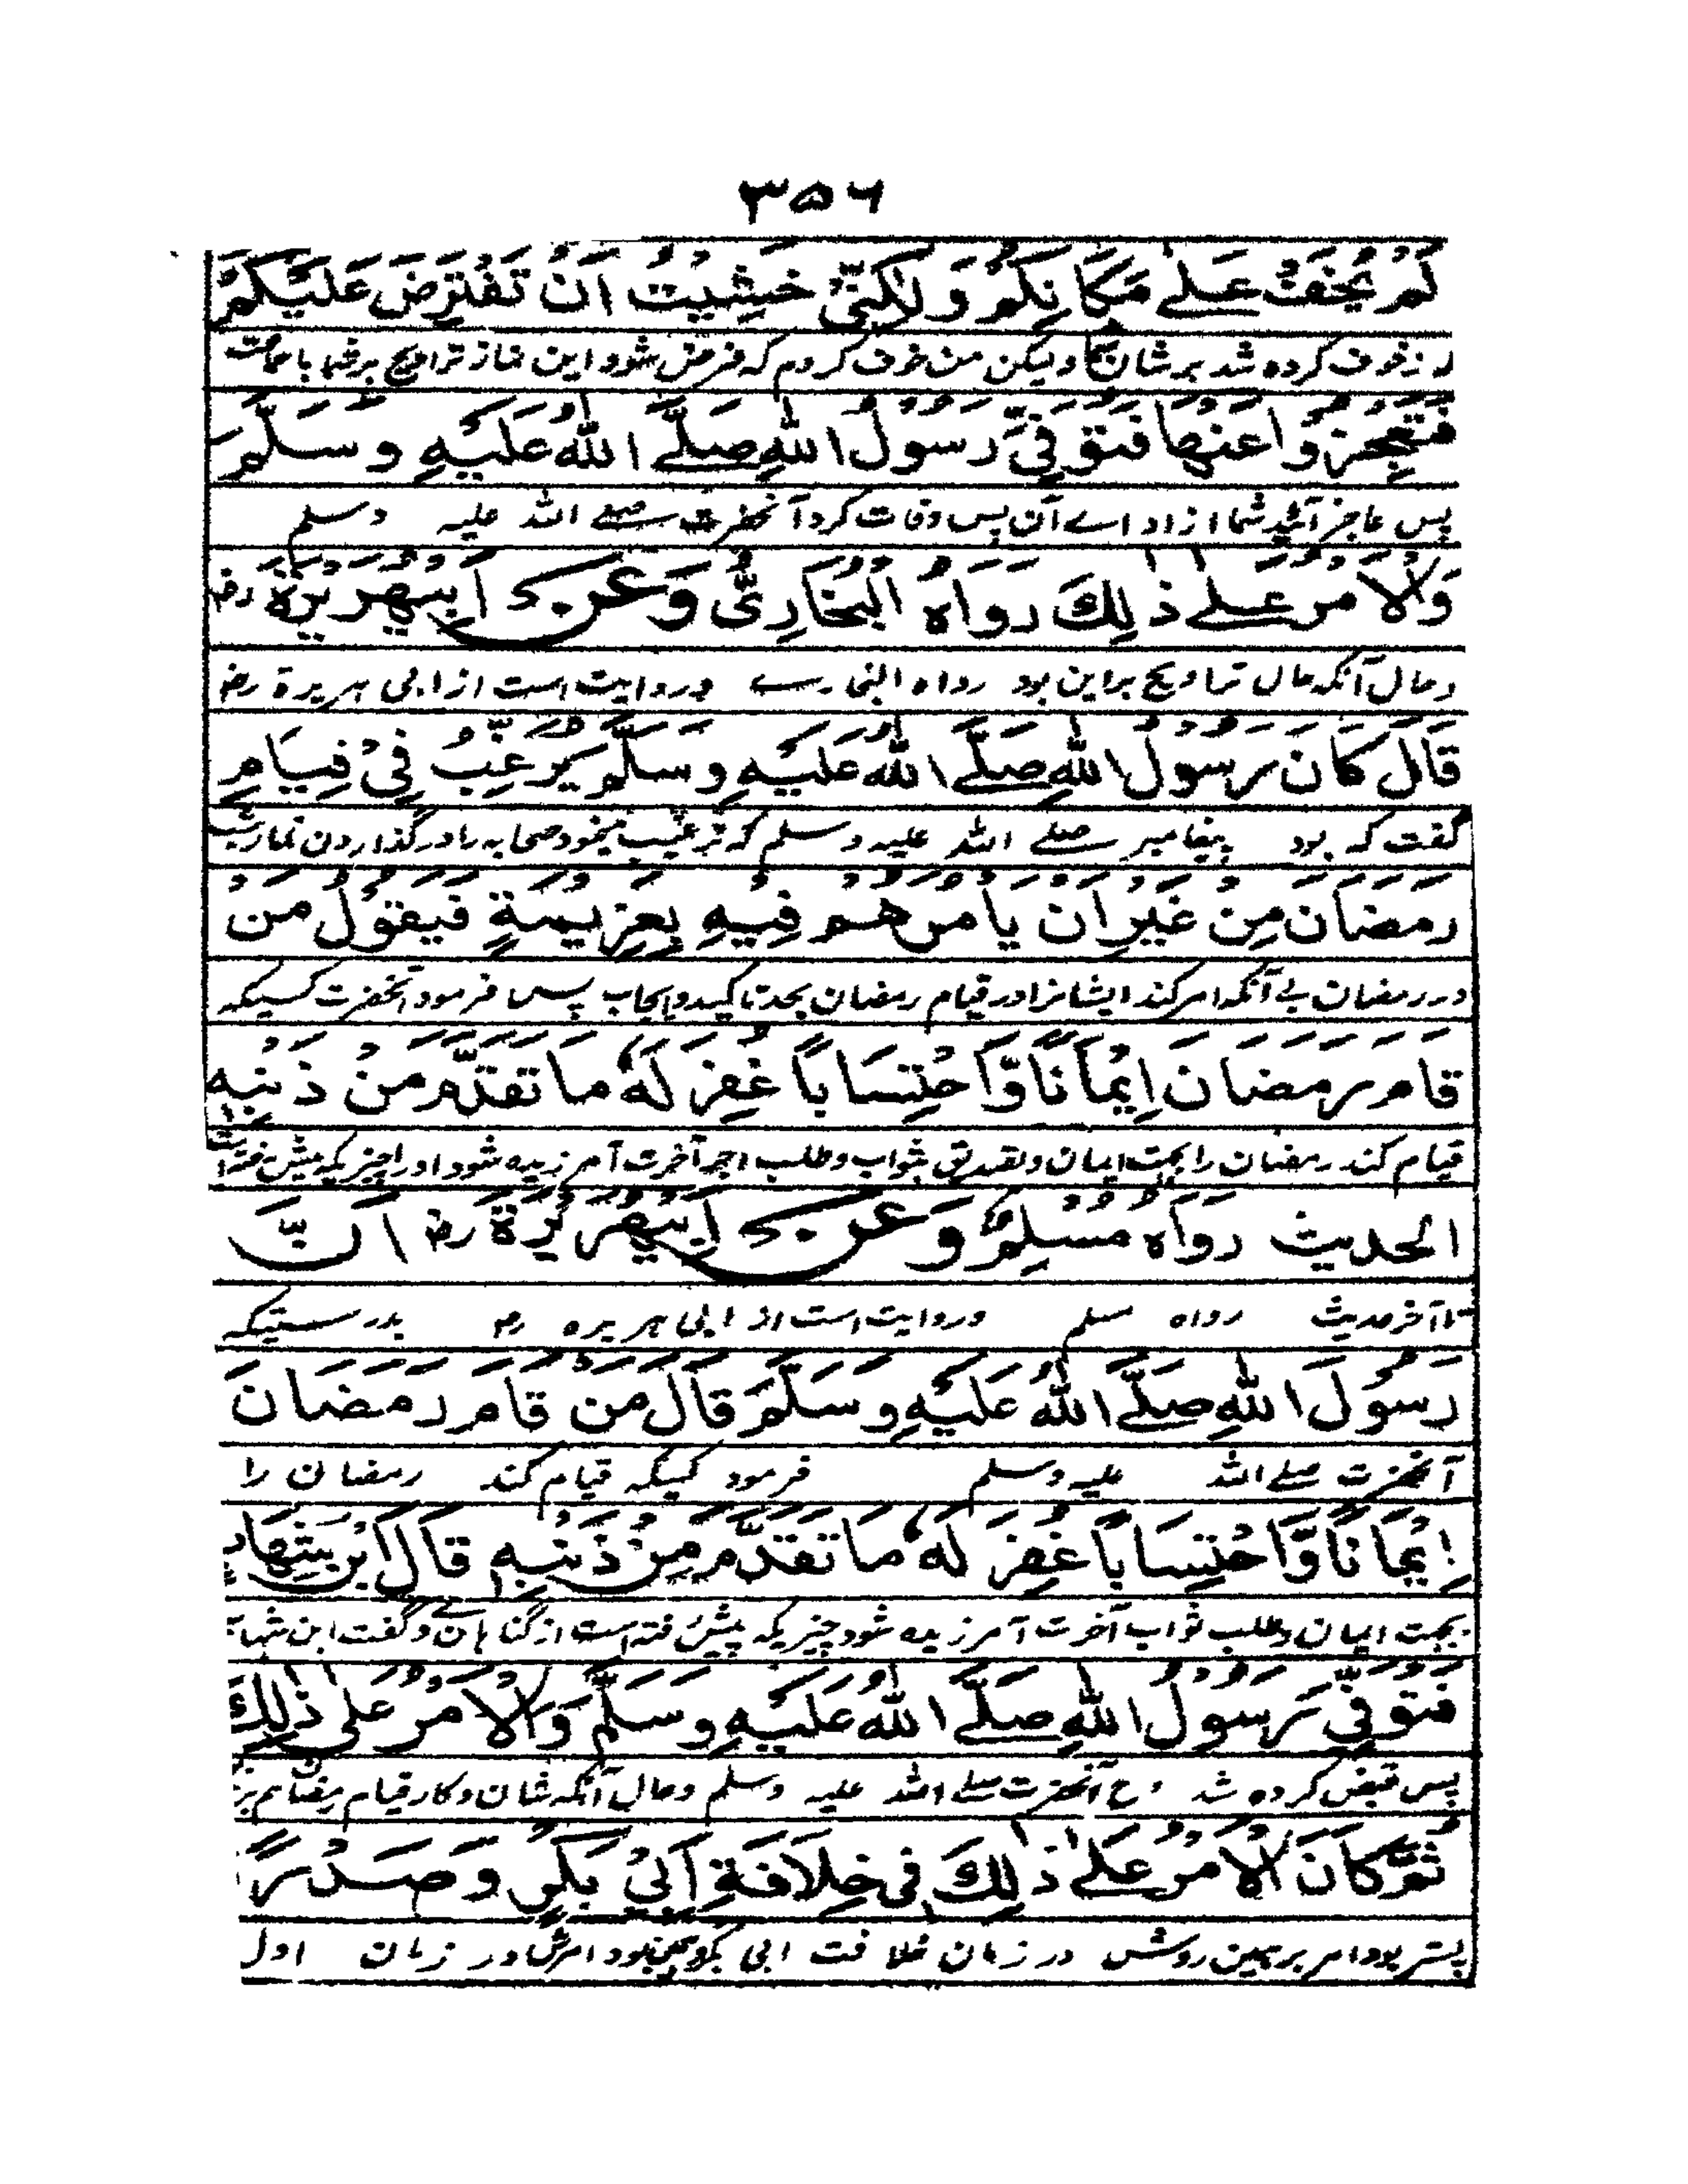 ۳۵۶
لَمْ يُخَفْ عَلٰے مَكَانِكُمْ وَلٰكِنِّىْ خَشِيْتُ اَنْ تَفْتَرِضَ عَلَيْكُمْ
کرده شد بر شان شما ولیکن من خوف کردم که فرض شود این نماز تراویح بر شما با جماعت
فَتَعْجِزُوا عَنْهَا فَتُوُفِّىَ رَسُوْلُ اللهِ صَلَّے اللهُ عَلَيْهِ وَسَلَّمَ
پس عاجز آئید شما از ادائے آن پس وفات کرد آنحضرت صلے الله علیه وسلم
وَالْاَمْرُ عَلٰے ذٰلِكَ رَوَاهُ الْبُخَارِىُّ وَعَنْ اَبِيْهُرَيْرَةَ رض
وحال آنکه حال تراویح براین بود رواه البخارے وروایت است از ابی هریرة رض
قَالَ كَانَ رَسُوْلُ اللهِ صَلَّے اللهُ عَلَيْهِ وَسَلَّمَ يُرَغِّبُ فِىْ قِيَامِ
گفت که بود پیغامبر صلے الله علیه وسلم که ترغیب میخود صحابه را در گذاردن نماز شب
رَمَضَانَ مِنْ غَيْرِ اَنْ يَامُرَهُمْ فِيْهِ بِعَزِيْمَةٍ فَيَقُوْلُ مَنْ
در رمضان بے آنکه امر کند ایشانرا در قیام رمضان بحد تاکید وایجاب پس فرمود آنحضرت کسیکه
قَامَ رَمَضَانَ اِيْمَانًا وَّاحْتِسَابًا غُفِرَ لَهٗ مَا تَقَدَّمَ مِنْ ذَنْبِهٖ
قیام کند رمضان را بجهت ایمان وتصدیق بثواب وطلب اجر آخرت آمرزیده شود او را چیزیکه پیش رفته است
الحديث رَوَاهُ مُسْلِمٌ وَعَنْ اَبِيْهُرَيْرَةَ رض اَنَّ
تا آخر حدیث رواه مسلم وروایت است از ابی هریره رض بدرستیکه
رَسُوْلَ اللهِ صَلَّے اللهُ عَلَيْهِ وَسَلَّمَ قَالَ مَنْ قَامَ رَمَضَانَ
آنحضرت صلے الله علیه وسلم فرمود کسیکه قیام کند رمضان را
اِيْمَانًا وَّاحْتِسَابًا غُفِرَ لَهٗ مَا تَقَدَّمَ مِنْ ذَنْبِهٖ قَالَ ابْنُ شِهَابٍ
بجهت ایمان وطلب ثواب آخرت آمرزیده شود چیزیکه پیش رفته است از گناهان وے وگفت ابن شهاب
فَتُوُفِّىَ رَسُوْلُ اللهِ صَلَّے اللهُ عَلَيْهِ وَسَلَّمَ وَالْاَمْرُ عَلٰى ذٰلِكَ
پس قبض کرده شد روح آنحضرت صلے الله علیه وسلم وحال آنکه شان وکار قیام رمضان هم
ثُمَّ كَانَ الْاَمْرُ عَلٰے ذٰلِكَ فِى خِلَافَةِ اَبِىْ بَكْرٍ وَصَدْرًا
پستر بود امر بر همین روش در زمان خلافت ابی بکر وهمین بود امرش در زمان اول